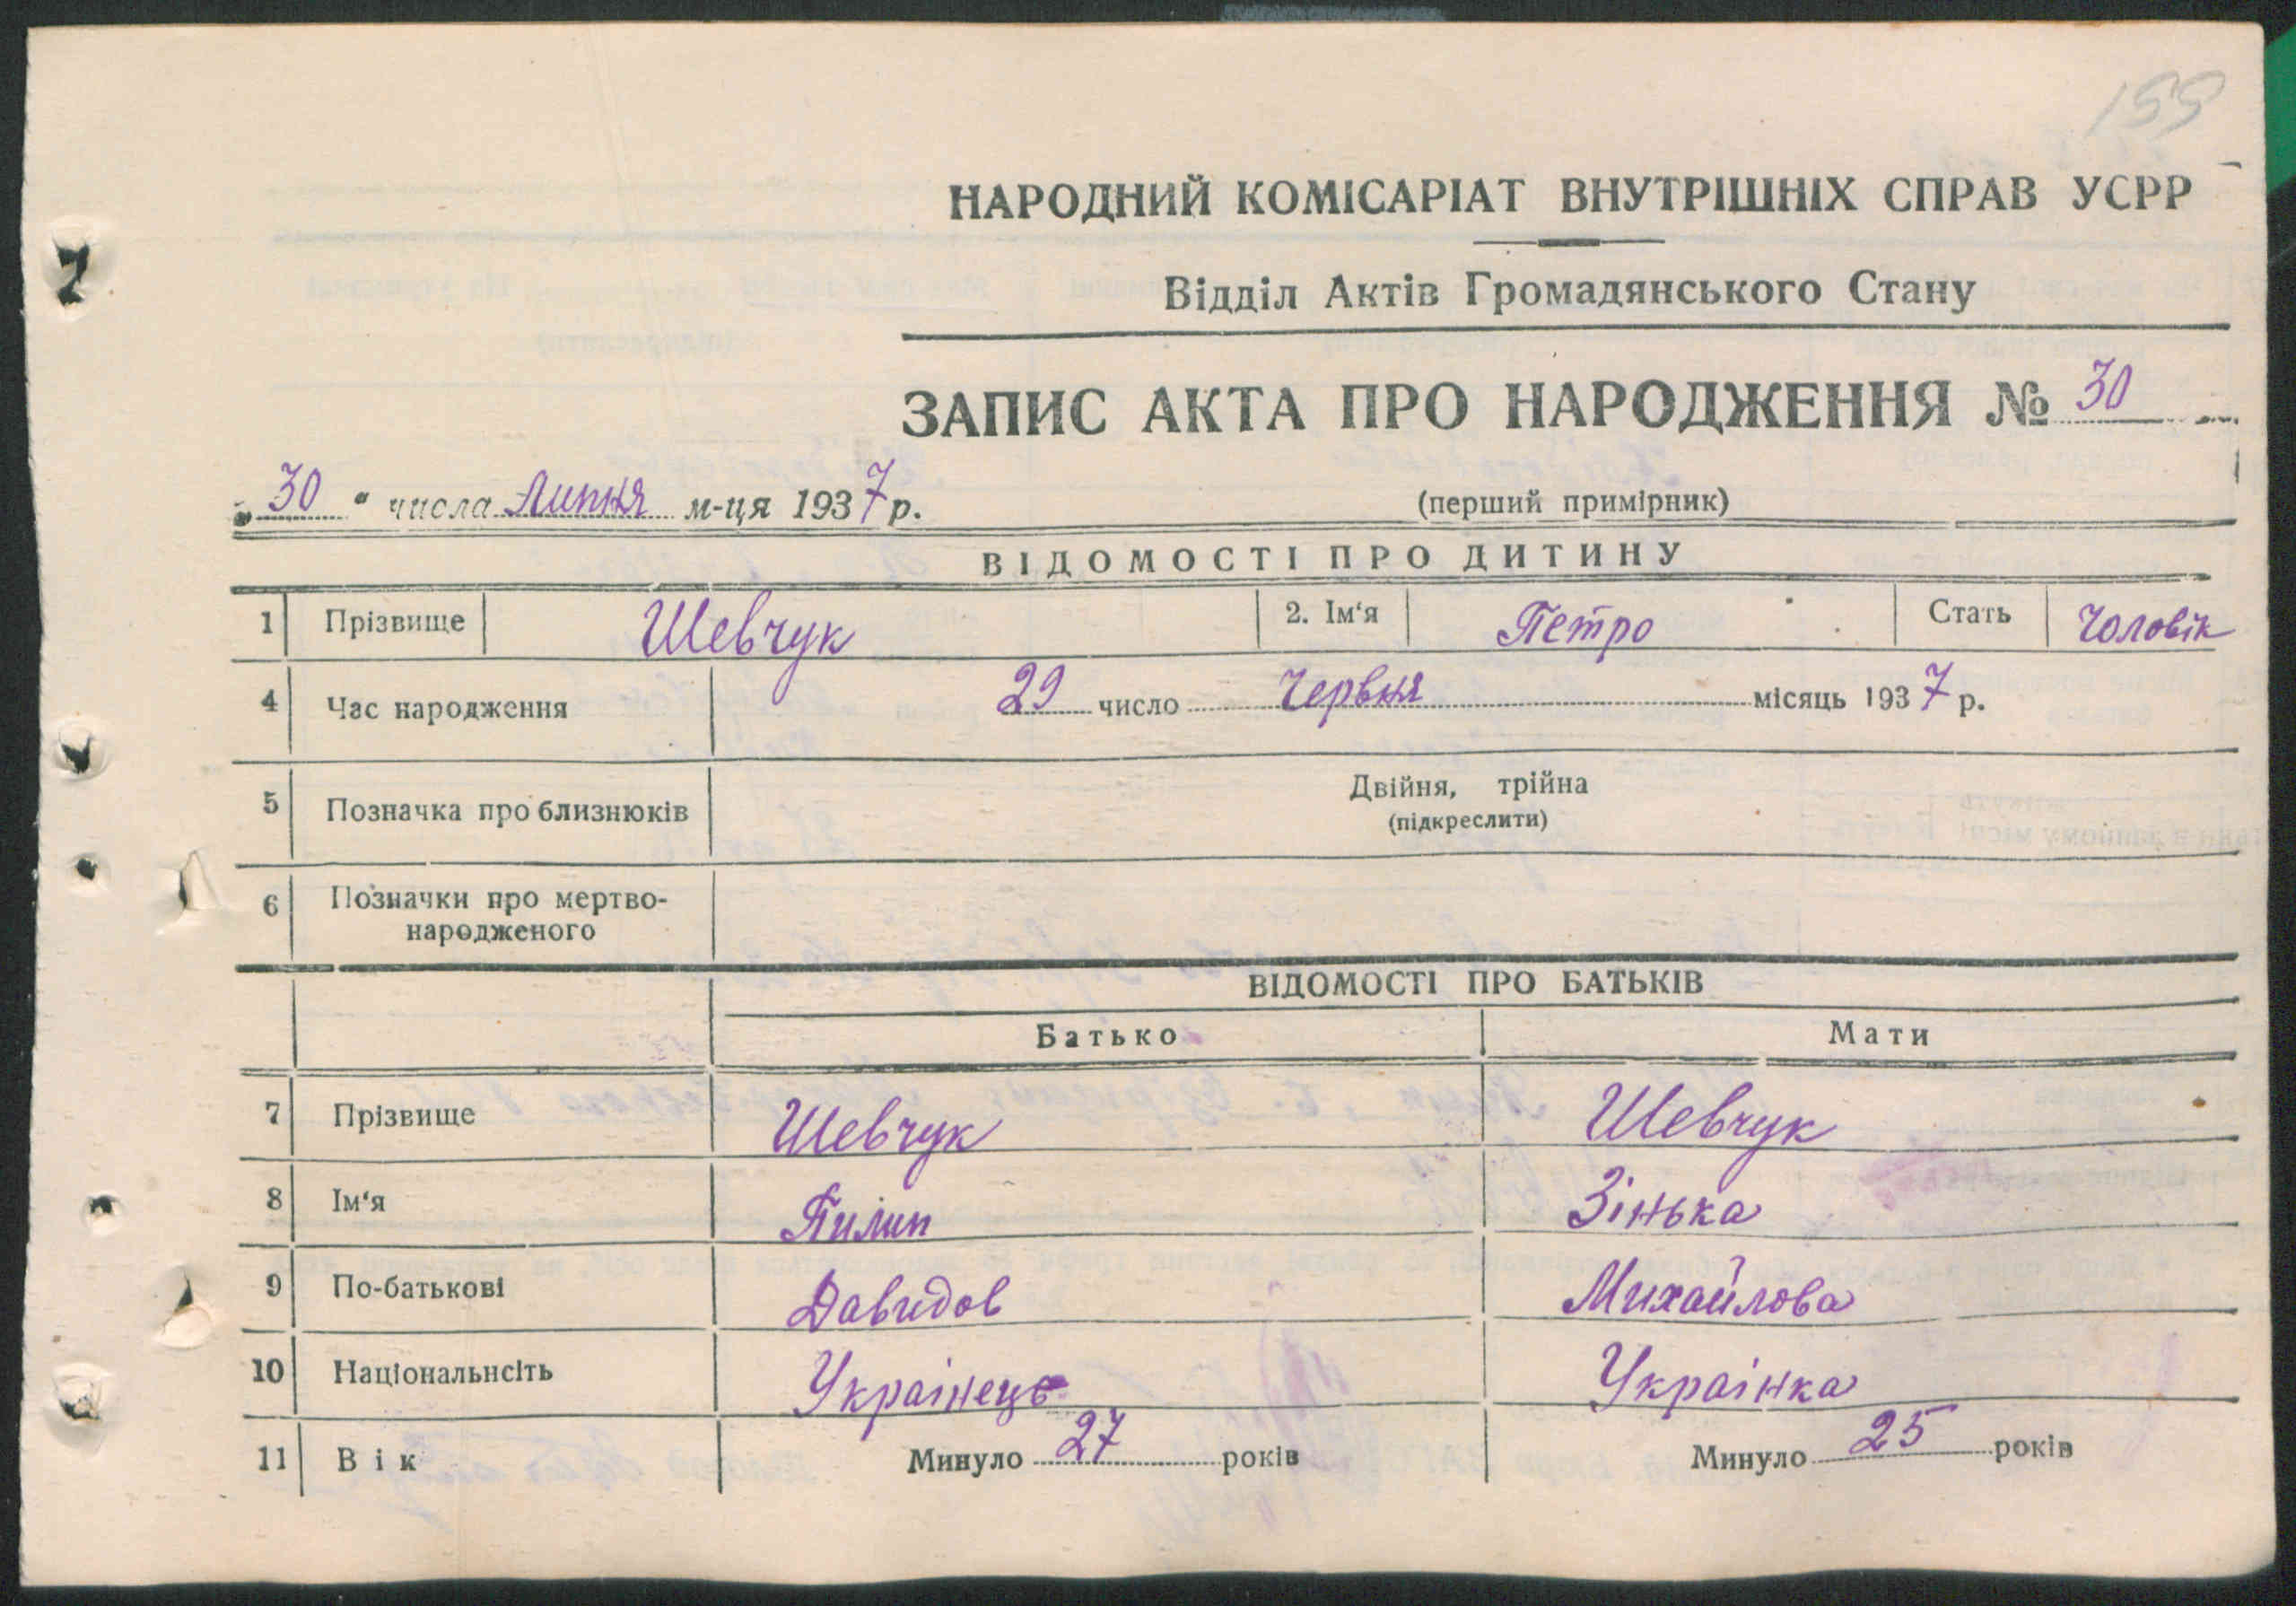 155
НАРОДНИЙ КОМІСАРІАТ ВНУТРІШНІХ СПРАВ УСРР
Відділ Актів Громадянського Стану
ЗАПИС АКТА ПРО НАРОДЖЕННЯ № 30
„30“ числа Липня м-ця 1937 р. (перший примірник)
ВІДОМОСТІ ПРО ДИТИНУ
1 Прізвище Шевчук 2. Ім‘я Петро Стать Чоловік
4 Час народження 29 число Червня місяць 1937 р.
5 Позначка про близнюків Двійня, трійна
(підкреслити)
6 Позначки про мертво-
народженого
ВІДОМОСТІ ПРО БАТЬКІВ
Батько Мати
7 Прізвище Шевчук Шевчук
8 Ім‘я Пилип Зінька
9 По-батькові Давидов Михайлова
10 Національнсіть Українець Українка
11 Вік Минуло 27 років Минуло 25 років